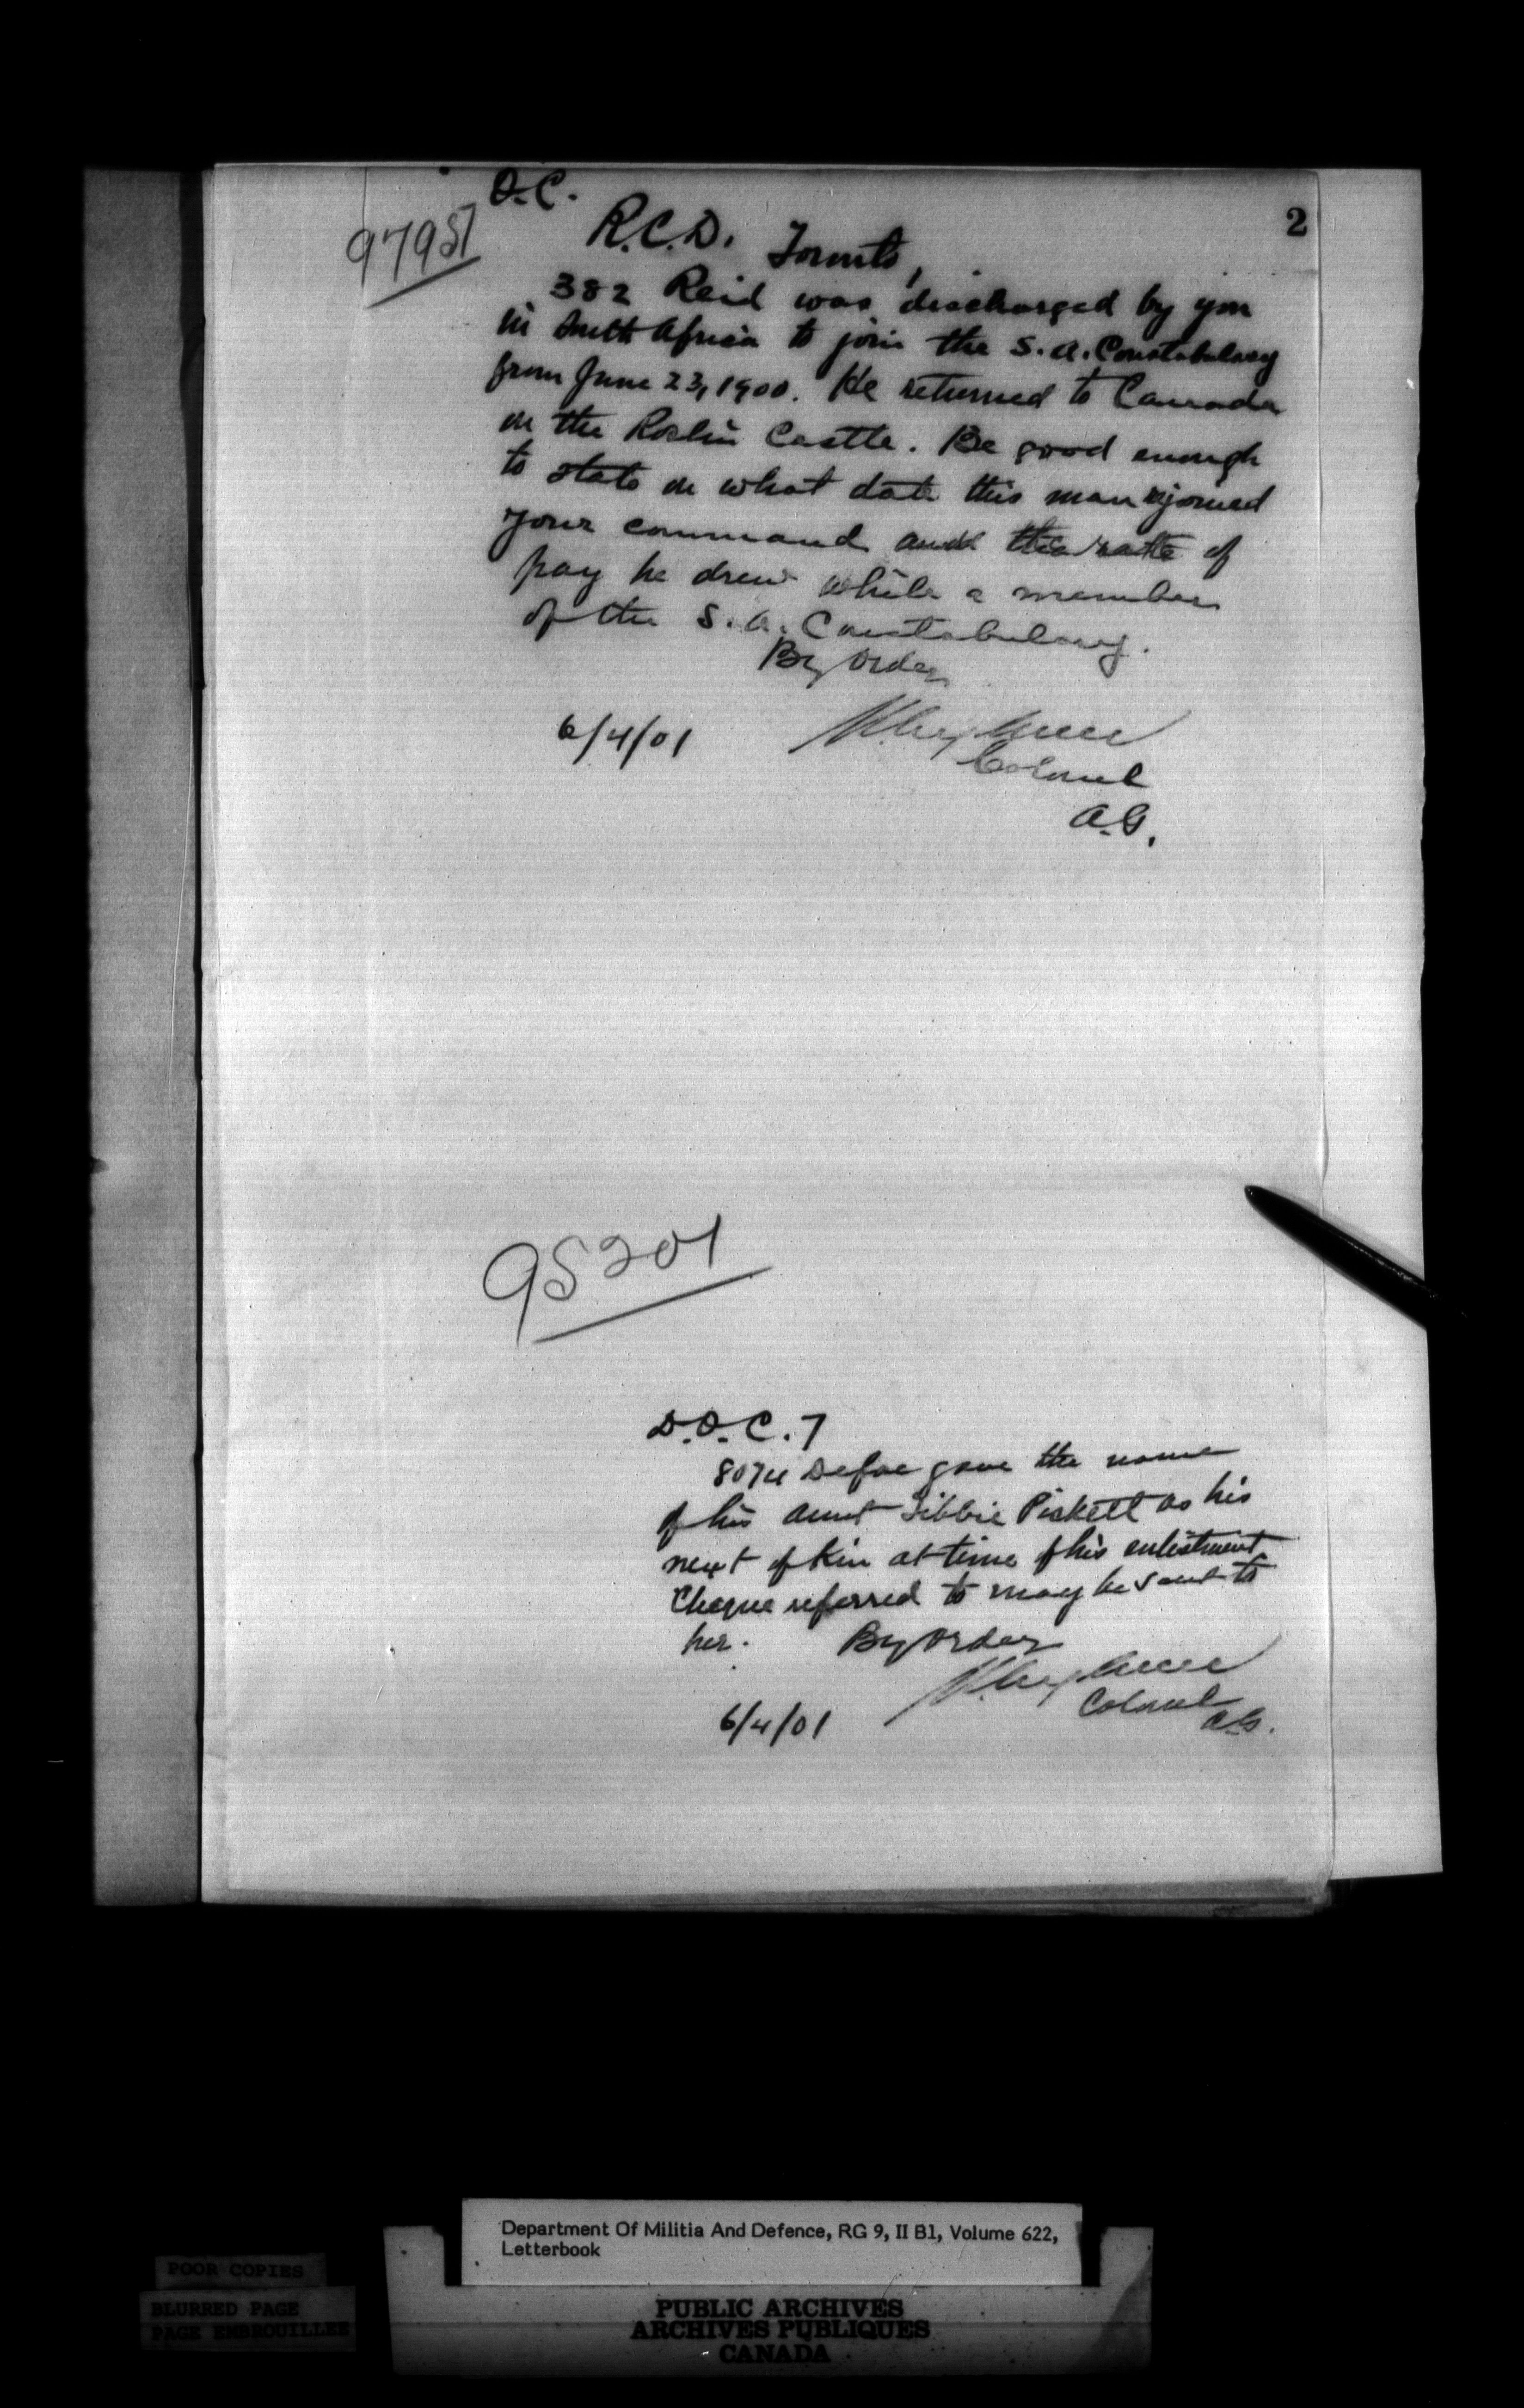 2
O.C.
97951
R.C.D. Toronto,
382 Reid was discharged by you
in South Africa to join the S.A. Constabulary
from June 23, 1900. He returned to Canada
on the Roslin Castle. Be good enough
to state on what date this man rejoined
your command and the rate of
pay he drew while a member
of the S.A. Constabulary.
By Order
6/4/01
Colonel
A.G.
95201
D.O.C. 7
8074 Defoe gave the name
of his aunt Libbie Pickett as his
next of kin at time of his enlistment
Cheque referred to may be sent to
her. By Order
Colonel
6/4/01
A.G.
Department Of Militia And Defence, RG 9, II B1, Volume 622,
Letterbook
POOR COPIES
BLURRED PAGE
PAGE EMBROUILLEE
PUBLIC ARCHIVES
ARCHIVES PUBLIQUES
CANADA